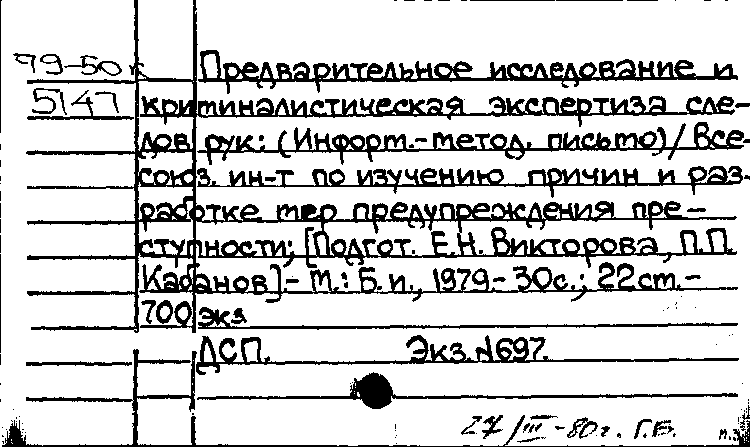 79-50к Предварительное исследование и
5147 криминалистическая экспертиза сле-
дов рук: (Информ.-метод. письмо)/ Все-
союз. ин-т по изучению причин и раз-
работке мер предупреждения пре-
ступности; [Подгот. Е.Н. Викторова, П.П.
Кабанов]- М.: Б.и., 1979.- 30с.; 22ст.-
700 экз
ДСП. Экз.№697.
27/III-80г. Г.Б.